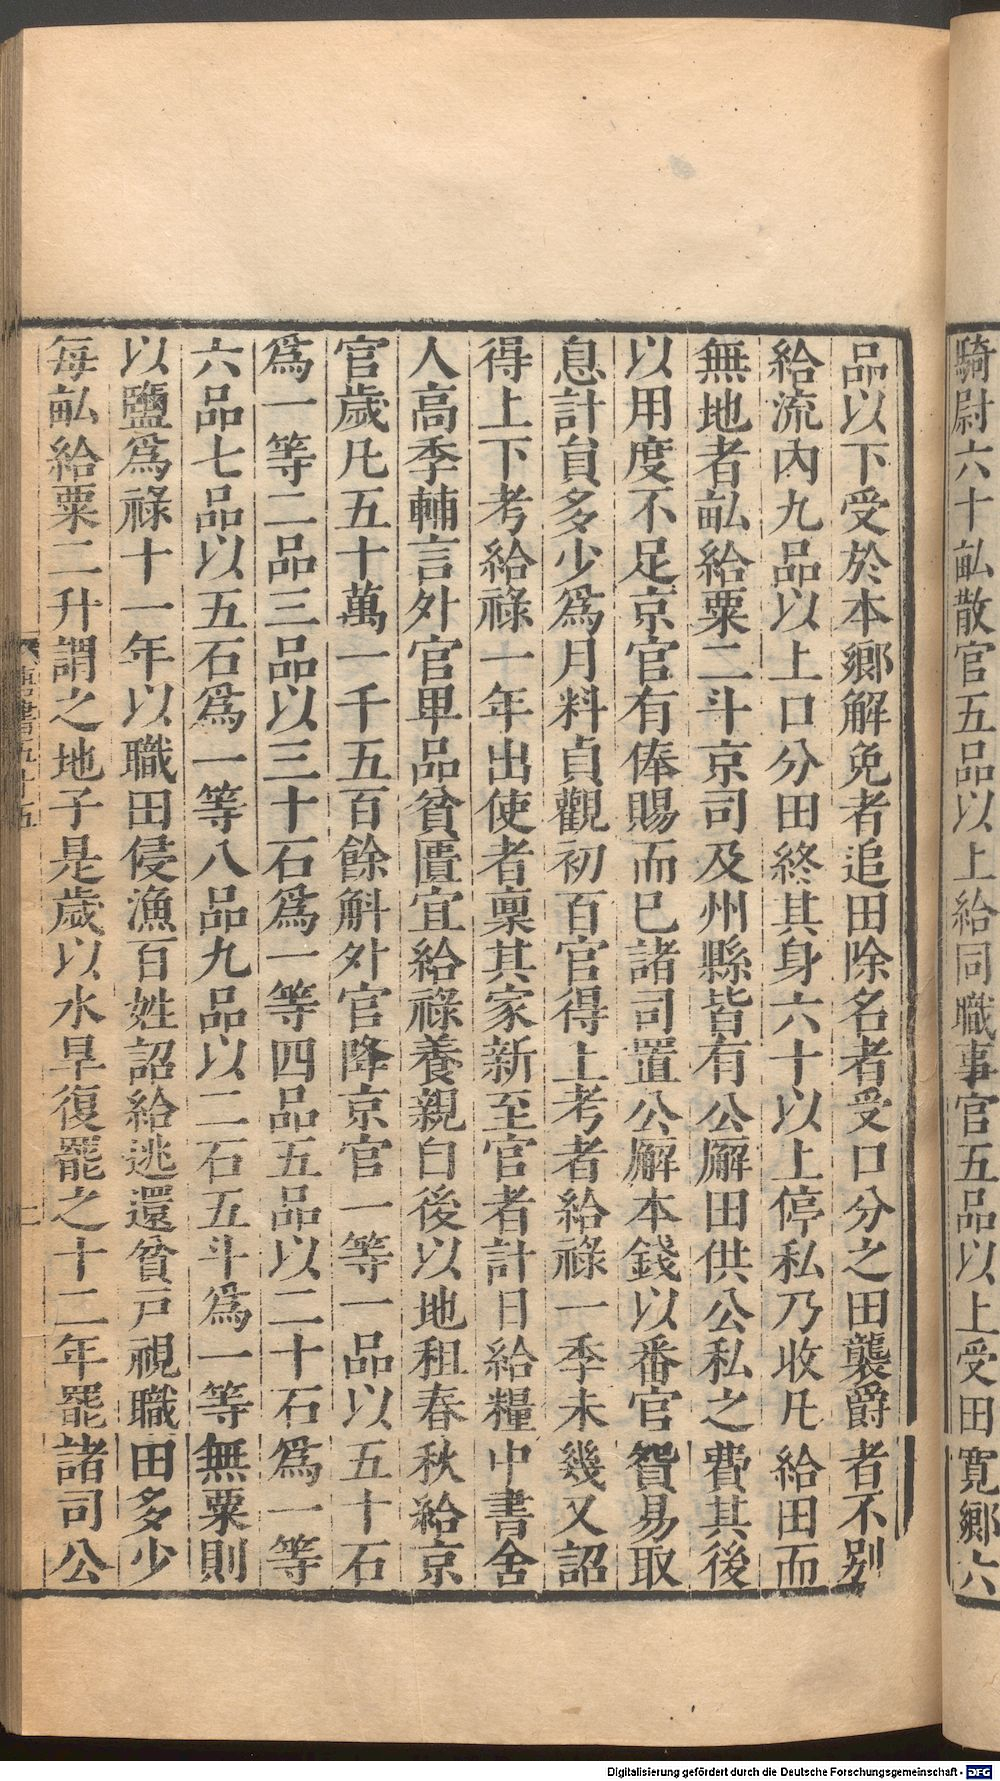 騎尉六十畝散官五品以上給同職事官五品以上受田寛鄉六
品以下受於本鄉解免者追田除名者受口分之田襲爵者不别
給流內九品以上口分田終其身六十以上停私乃收凡給田而
無地者畝給粟二斗京司及州縣皆有公廨田供公私之費其後
以用度不足京官有俸賜而已諸司置公廨本錢以番官貿易取
息計負多少爲月料貞觀初百官得上考者給祿一季未幾又詔
得上下考給祿一年出使者稟其家新至官者計日給糧中書舍
人高季輔言外官卑品貧匱宜給祿養親自後以地租春秋給京
官歲凡五十萬一千五百餘斛外官降京官一等一品以五十石
爲一等二品三品以三十石爲一等四品五品以二十石爲一等
六品七品以五石爲一等八品九品以二石五斗爲一等無粟則
以鹽爲祿十一年以職田侵漁百姓詔給逃還貧戸視職田多少
每畝給粟二升謂之地子是歲以水旱復罷之十二年罷諸司公
唐書五十五
二
Digitalisierung gefördert durch die Deutsche Forschungsgemeinschaft - DFG